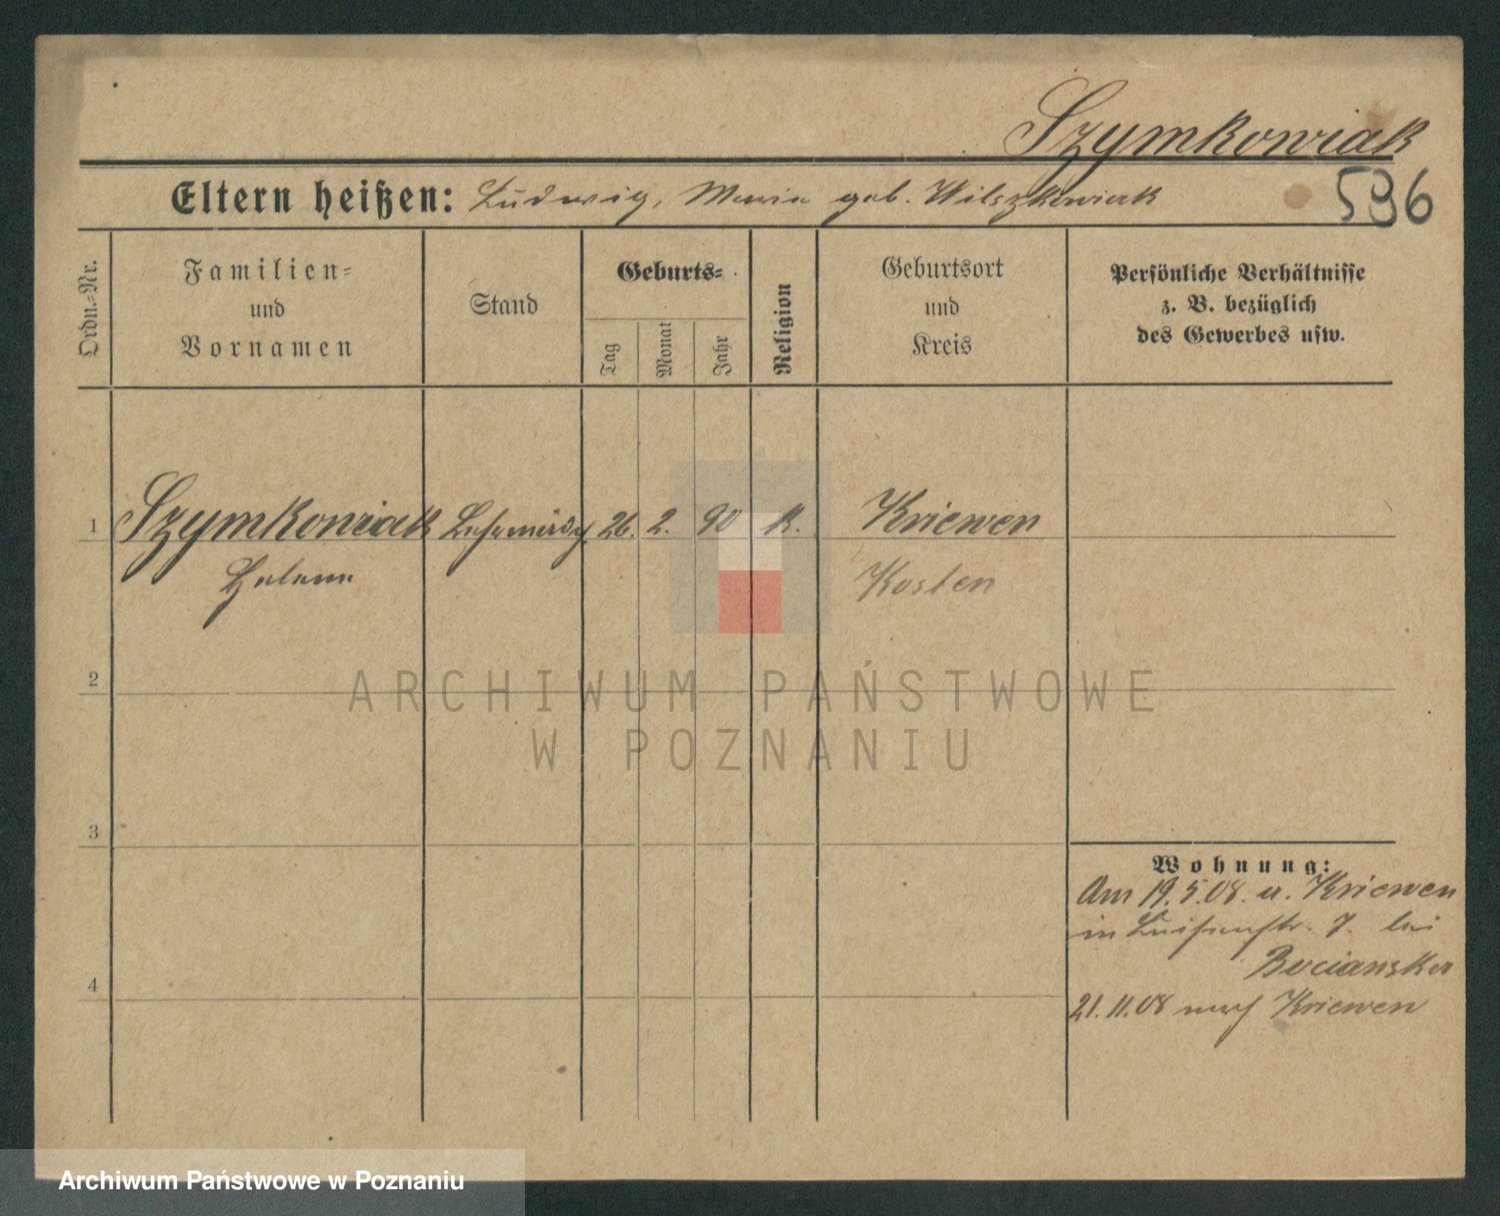 Szymkowiak
Eltern heißen: Ludwig, Maria geb. Wilszkowiak
596
Ordn.=Nr.
Familien=
und
Vornamen
Stand
Geburts=
Tag
Monat
Jahr
Religion
Geburtsort
und
Kreis
Persönliche Verhältnisse
z. B. bezüglich
des Gewerbes usw.
1 Szymkowiak 26. 2. 90 K. Kriewen
Helene Kosten
2
3
4
Wohnung:
Am 19.5.08. v. Kriewen
in Luisenstr. 7. bei
Bocianska
21.11.08 nach Kriewen
ARCHIWUM PAŃSTWOWE
W POZNANIU
Archiwum Państwowe w Poznaniu